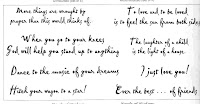 More things are wrought by
prayer than this world thinks of.
When you go to your knees
God will help you stand up to anything
Dance to the music of your dreams
Hitch your wagon to a star!
To love and to be loved
is to feel the sun from both sides
The laughter of a child
is the light of a house.
I just love you!
Ever the best ... of friends